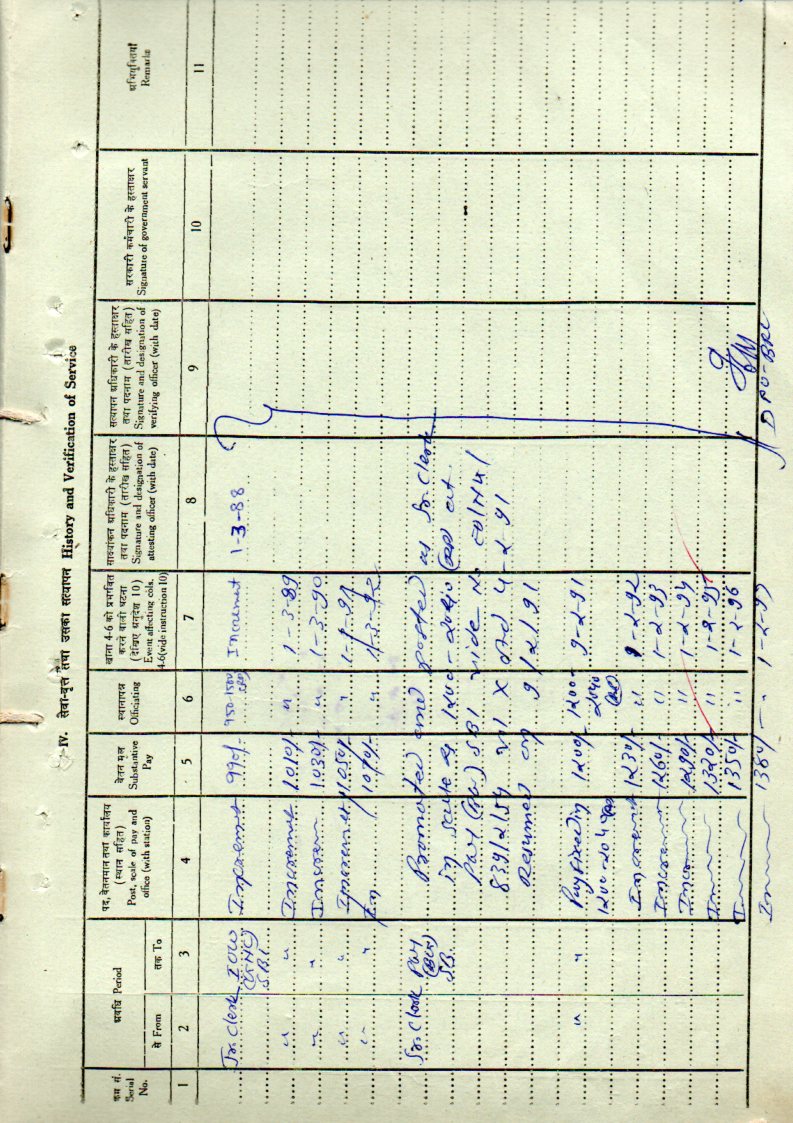 IV. सेवा-वृत्त तथा उसका सत्यापन History and Verification of Service
क्रम सं. Serial No.
अवधि Period
से From
तक To
पद, वेतनमान तथा कार्यालय (स्थान सहित) Post, scale of pay and office (with station)
वेतन मूल Substantive Pay
स्थानापन्न Officiating
खाना 4-6 को प्रभावित करने वाली घटना (देखिए अनुदेश 10) Event affecting cols. 4-6(vide instruction 10)
साक्ष्यांकन अधिकारी के हस्ताक्षर तथा पदनाम (तारीख सहित) Signature and designation of attesting officer (with date)
सत्यापन अधिकारी के हस्ताक्षर तथा पदनाम (तारीख सहित) Signature and designation of verifying officer (with date)
सरकारी कर्मचारी के हस्ताक्षर Signature of government servant
अभियुक्तियां Remarks
1 2 3 4 5 6 7 8 9 10 11
Jr. Clerk IOW Increment 990/- 950-1500 Increment 1-3-88
SBI
" " Increment 1010/- " 1-3-89
" " Increment 1030/- " 1-3-90
" " Increment 1050/- "
" " "
Sr. Clerk Pay Promoted and posted as Sr. Clerk
SBI in scale of 1200-2040
Pay SBI vide No
839/2/54 dtd 4-2-91
Resumed on 9/2/91
" " Pay fixed in 1200/- 1200- 9-2-91
2040
Increment 1230/- " 1-2-92
1260/- " 1-2-93
1290/- " 1-2-94
1320/- " 1-2-95
1350/- " 1-2-96
1380/- 1-2-97
DPO-BRC